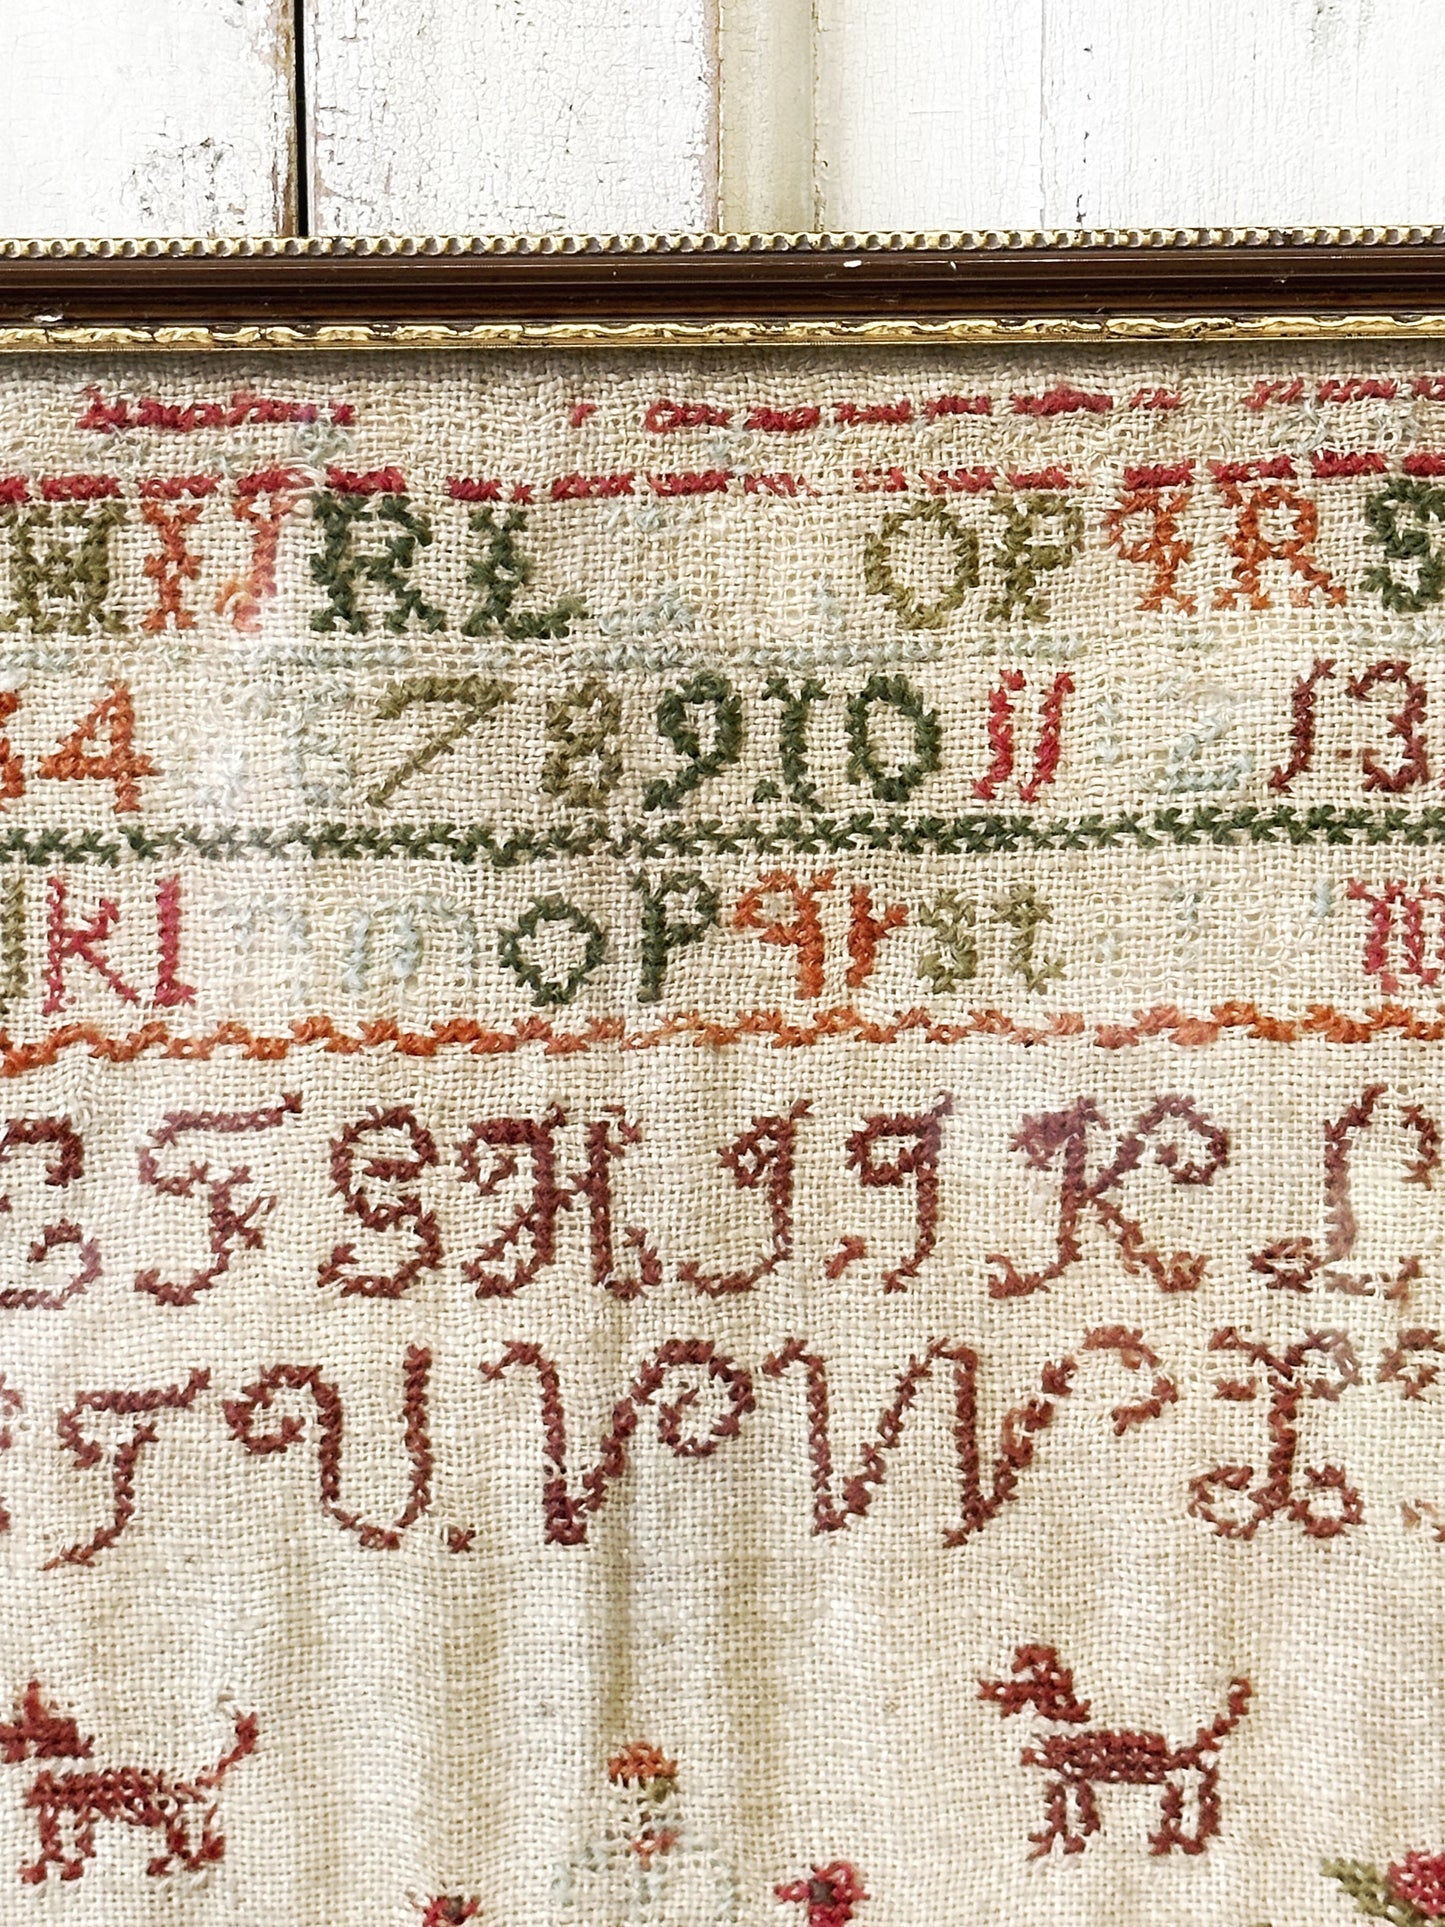 H I J K L M N O P Q R S
4 5 6 7 8 9 10 11 12 13
k l n m o p q r s t u w
E F G H I J K L
T U V W X